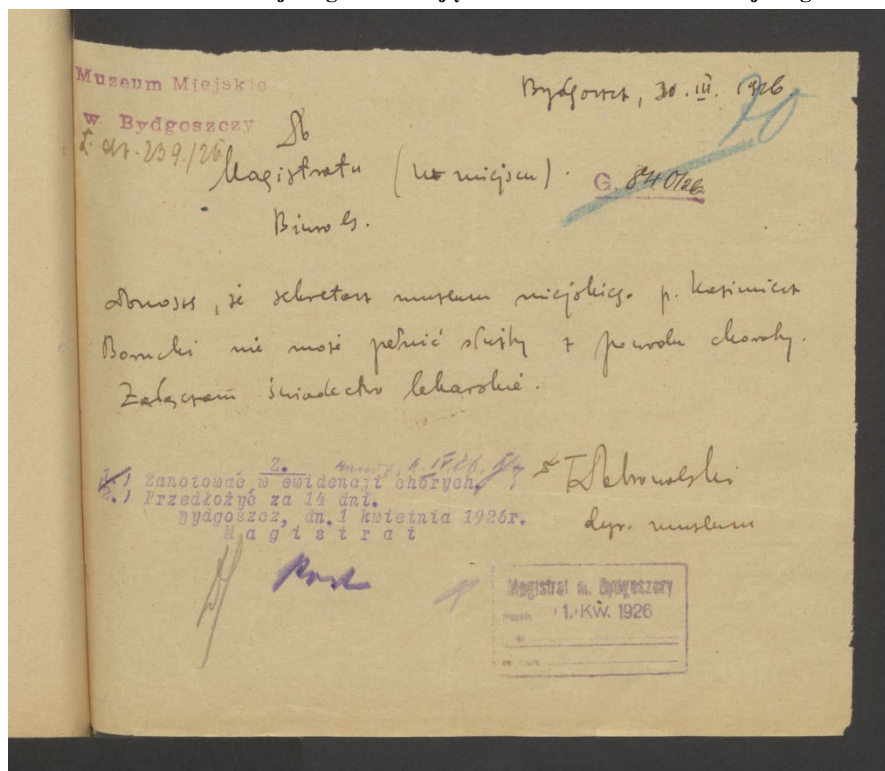 Muzeum Miejskie
w Bydgoszczy
L. dz. 239./26.
Bydgoszcz, 30. III. 1926.
70
Do
Magistratu (w miejscu).
G. 840/26
Biuro G.
Donoszę, że sekretarz muzeum miejskiego p. Kazimierz
Borucki nie może pełnić służby z powodu choroby.
Załączam świadectwo lekarskie.
Z.
1.) Zanotować w ewidencji chorych.
2.) Przedłożyć za 14 dni.
Bydgoszcz, dn. 1 kwietnia 1926r.
Magistrat
T Dobrowolski
dyr. muzeum
Magistrat m. Bydgoszczy
1. KW. 1926